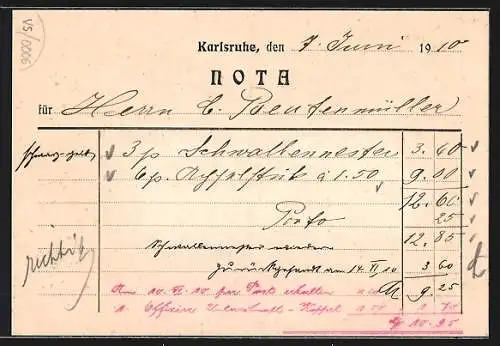 VS/0006
Karlsruhe, den 7. Juni 1910
NOTA
für Herrn C. Beutenmüller
3 p Schwalbennester 3. 60
6 p à 1.50 9. 00
12. 60
Porto 25
12. 85
Schwalbennester wurden
zurückgesandt am 14. VI. 10 3 60
M 9. 25
richtig
Am 10. VI. 10 per Post erhalten
1 Offizier Koppel 1 70
10-95